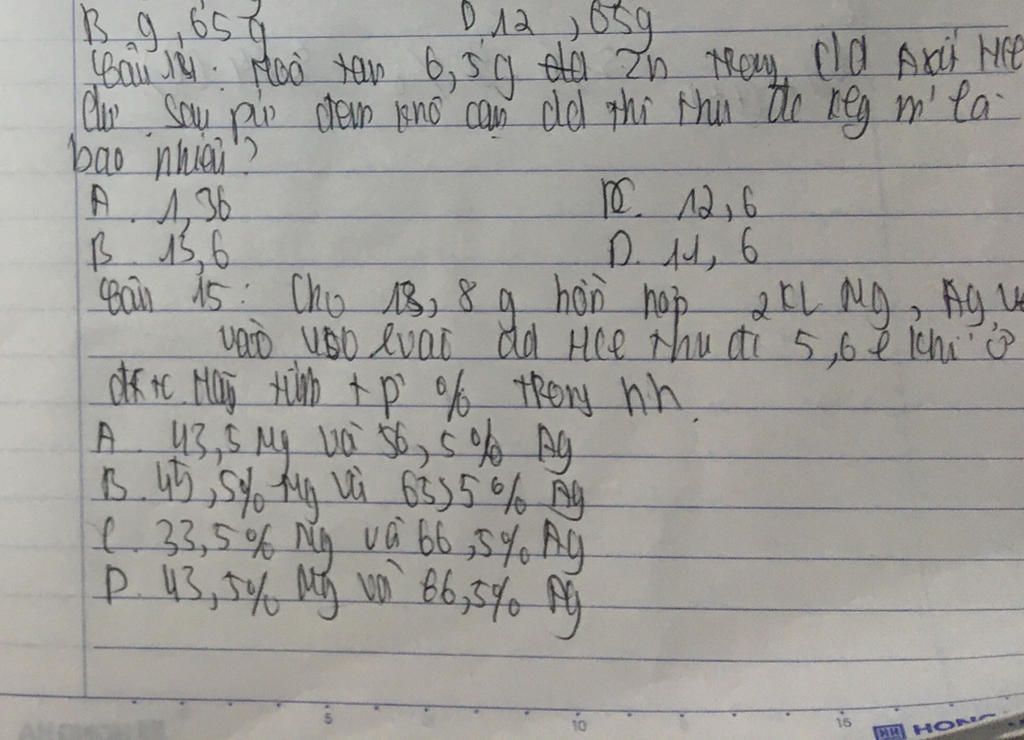 B 9,65g D.12,65g
Câu 14: Hoà tan 6,5g Zn trong dd Axit HCl
dư. Sau pứ đem khô cạn dd thì thu đc m là
bao nhiêu?
A. 1,36 C. 12,6
B. 13,6 D. 11,6
Câu 15: Cho 13,8 g hỗn hợp 2KL Mg, Ag
vào dd HCl thu đc 5,6 l khí ở
đktc. Hãy tính t p % trong hh.
A. 43,5 Mg và 56,5% Ag
B. 45,5% Mg và 63,5% Ag
C. 33,5% Mg và 66,5% Ag
D. 43,5% Mg và 66,5% Ag
5 10 15 HH HONG